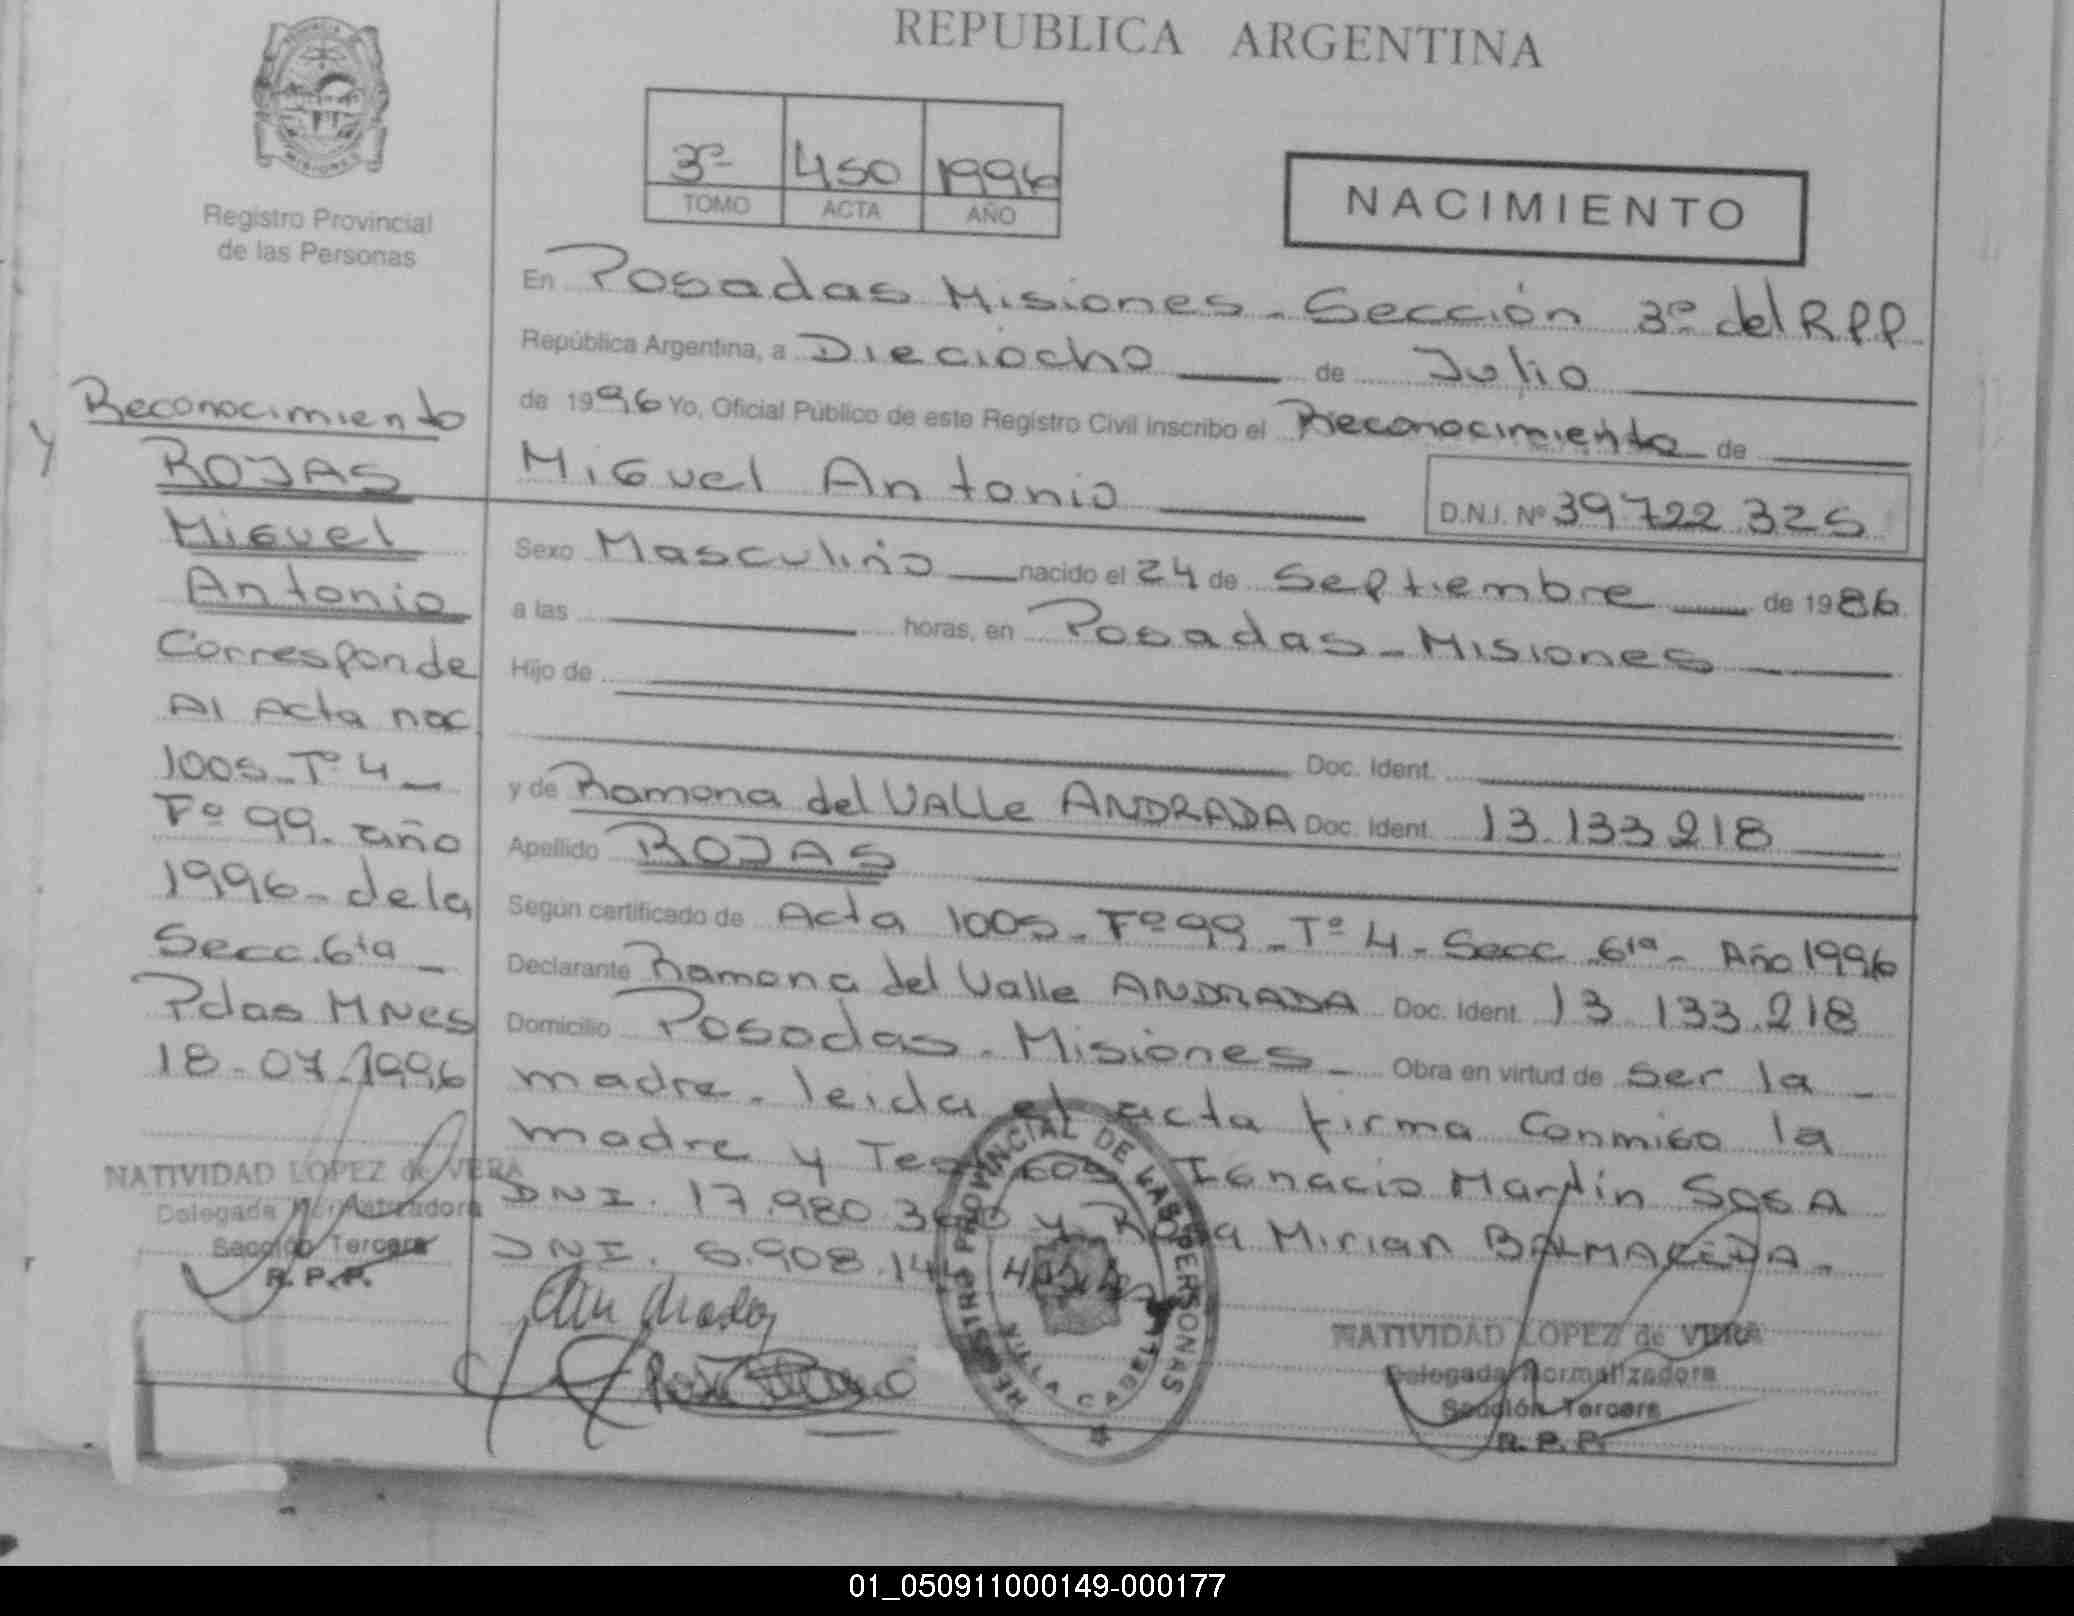 REPUBLICA ARGENTINA
PROVINCIA
MISIONES
Registro Provincial
de las Personas
3º 450 1996
TOMO ACTA AÑO
NACIMIENTO
En Posadas Misiones - Sección 3º del R.P.P.
República Argentina, a Dieciocho de Julio
de 1996 Yo, Oficial Público de este Registro Civil inscribo el Reconocimiento de
Miguel Antonio D.N.I. Nº 39722 325
Sexo Masculino nacido el 24 de Septiembre de 1986
a las horas, en Posadas - Misiones
Hijo de
Doc. Ident.
y de Ramona del Valle ANDRADA Doc. Ident. 13.133.218
Apellido ROJAS
Según certificado de Acta 1005 - Fº 99 - Tº 4 - Secc 6ta - Año 1996
Declarante Ramona del Valle ANDRADA Doc. Ident. 13 133.218
Domicilio Posadas - Misiones - Obra en virtud de Ser la -
madre - leida el acta firma Conmigo la
madre y Ignacio Martin SOSA
DNI. 17.980. y Rosa Mirian BALMACEDA -
DNI.
Reconocimiento
y
ROJAS
Miguel
Antonio
Corresponde
Al Acta nac
1005 - Tº 4 -
Fº 99 - año
1996 - de la
Secc. 6ta -
Pdas Mnes
18-07-1996
NATIVIDAD LOPEZ de VERA
Delegada Normalizadora
Sección Tercera
R. P. P.
REGISTRO PROVINCIAL DE LAS PERSONAS
VILLA CABELLO
NATIVIDAD LOPEZ de VERA
Delegada Normalizadora
Sección Tercera
R. P. P.
01_050911000149-000177